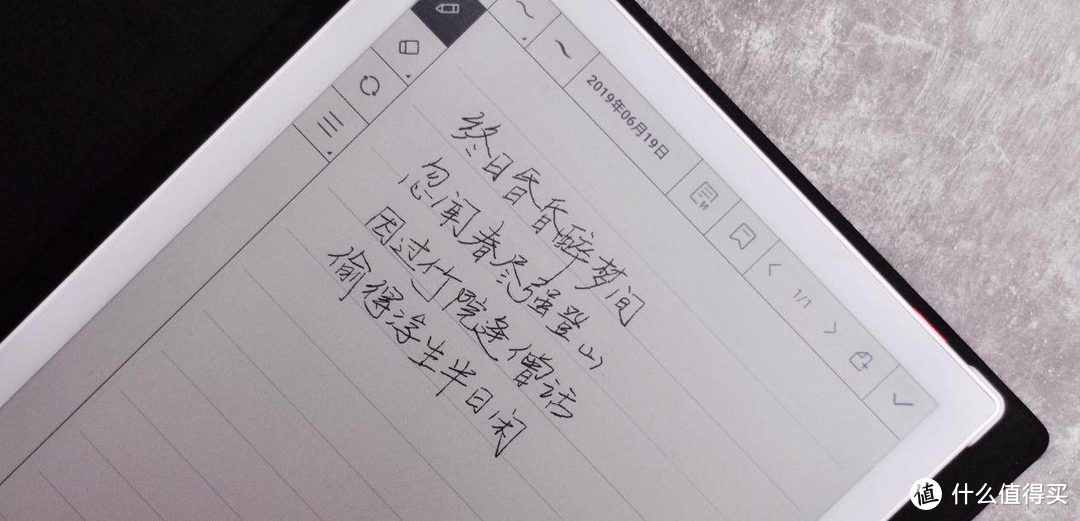 2019年06月19日
1/1
终日昏昏醉梦间
忽闻春尽强登山
因过竹院逢僧话
偷得浮生半日闲
值 什么值得买